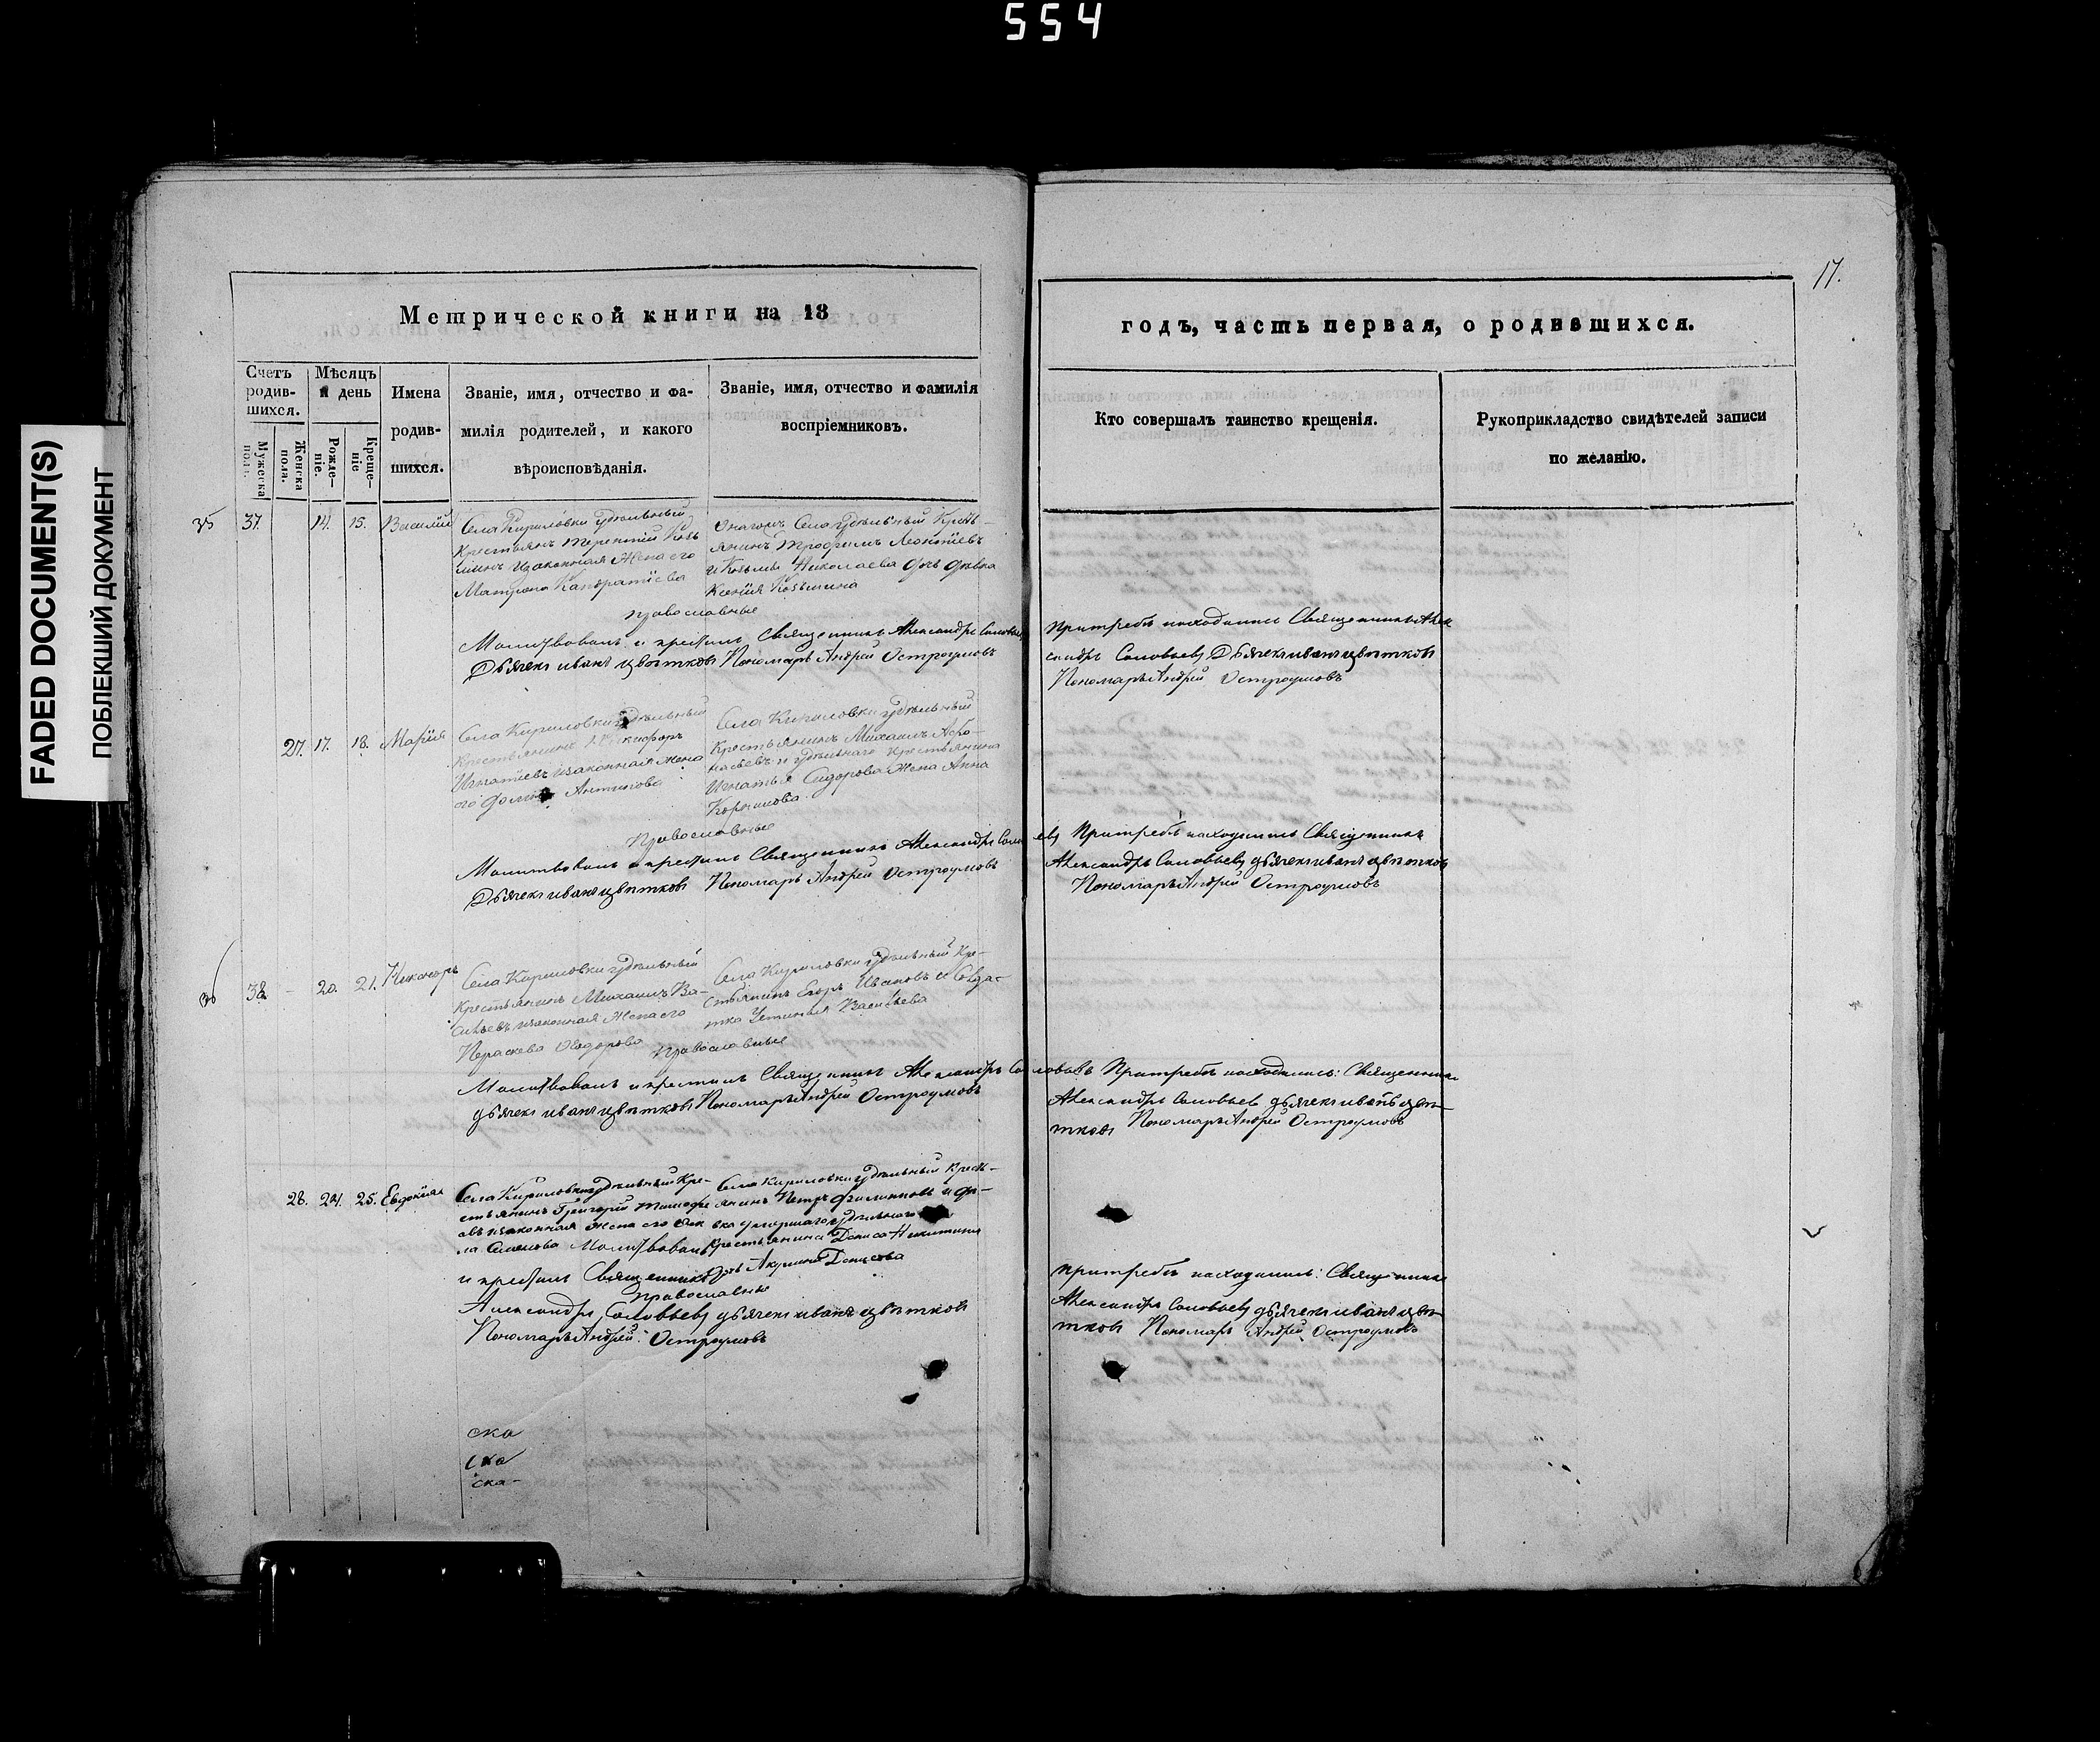 554
FADED DOCUMENT(S)
ПОБЛЕКШИЙ ДОКУМЕНТ
17.
Метрической книги на 18
годъ, часть первая, о родившихся.
Счетъ родив-шихся.
Мужеска пола.
Женска пола.
Мѣсяцъ и день
Рожде-ніе.
Креще-ніе
Имена родив-шихся.
Званіе, имя, отчество и фа-
милія родителей, и какого
вѣроисповѣданія.
Званіе, имя, отчество и фамилія
воспріемниковъ.
Кто совершалъ таинство крещенія.
Рукоприкладство свидѣтелей записи
по желанію.
35 37. 14. 15. Василій
Села Кириловки удѣльный
крестьянъ Терентій Козь
минъ изаконная Жена его
Матрона Кандратіева
Онагожъ Села удѣльный Кресть-
янинъ Трофимъ Леонтіевъ
и Козьмы Николаева
Ксенія Козьмина
православные
Молитвовалъ и крестилъ Священникъ Александръ Соловьевъ
Дьячекъ иванъ цвѣтковъ Пономарь Андрей Остроумовъ
Притребѣ находились Священникъ Алек
сандръ Соловьевъ Дьячекъ иванъ цвѣтковъ
Пономарь Андрей Остроумовъ
27. 17. 18. Марія
Села Кириловки удѣльный
крестьянинъ Никифоръ
Игнатіевъ изаконная жена
его Антипова
Села Кириловки удѣльный
Крестьянинъ Михаилъ Афо-
насьевъ и удѣльнаго крестьянина
Игнатья Сидорова Жена Анна
Корнилова
Православные
Молитвовалъ и крестилъ Священникъ Александръ Соловь
евъ
Дьячекъ иванъ цвѣтковъ Пономарь Андрей Остроумовъ
Притребѣ находились Священникъ
Александръ Соловьевъ дьячекъ иванъ цвѣтковъ
Пономарь Андрей Остроумовъ
36 38. - 20. 21. Никаноръ
Села Кириловки удѣльный
Крестьянинъ Михаилъ Ва-
сильевъ изаконная Жена его
Параскева Ѳеодорова
Села Кириловки удѣльный Кре-
стьянинъ Егоръ Ивановъ и Солда-
тка Устинья Васильева
православные
Молитвовалъ и крестилъ Священникъ Александръ Соловьевъ
дьячекъ иванъ цвѣтковъ Пономарь Андрей Остроумовъ
Притребѣ находились: Священникъ
Александръ Соловьевъ дьячекъ иванъ цвѣ-
тковъ Пономарь Андрей Остроумовъ
28. 24. 25. Евдокія
Села Кириловки удѣльный Кре-
стьянинъ Григорій Тимофе
евъ изаконная жена его Фек
ла Семенова
Села Кириловки удѣльный Кресть-
янинъ Петръ Филипповъ и дѣ-
вка умершаго удѣльнаго
Крестьянина Дениса Никитина
дочь Акулина Денисова
православные
Молитвовалъ
и крестилъ Священникъ
Александръ Соловьевъ дьячекъ иванъ цвѣтковъ
Пономарь Андрей Остроумовъ
притребѣ находились: Священникъ
Александръ Соловьевъ дьячекъ иванъ цвѣ
тковъ Пономарь Андрей Остроумовъ
ска
ска
ска-